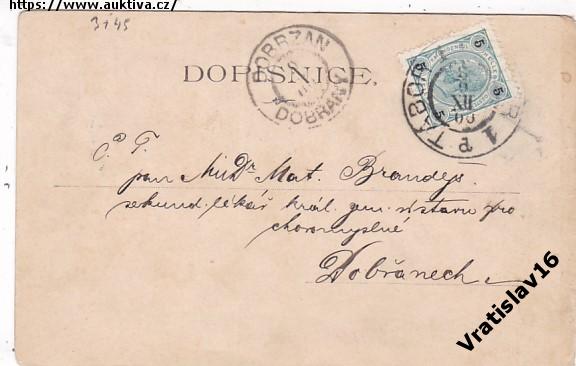 https://www.auktiva.cz/
3145
DOPISNICE.
DOBRZAN
DOBŘANY
5 5
5
TÁBOR
XII
00
1 P
P. T.
pan MUDr Mat. Brandejs
sekund. lékář král. zem. ústavu pro
choromyslné
Dobřanech
Vratislav16